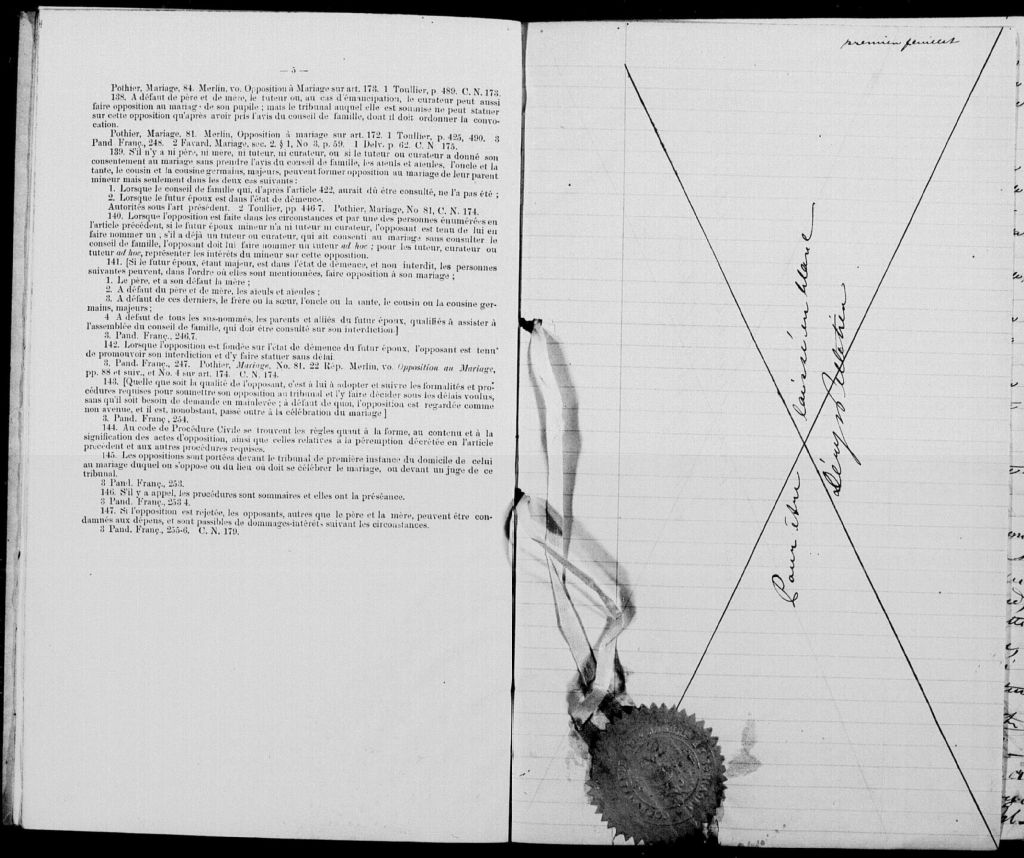 — 5 —
Pothier, Mariage, 84. Merlin, vo. Opposition à Mariage sur art. 173. 1 Toullier, p. 489. C. N. 173.
138. A défaut de père et de mère, le tuteur ou, au cas d'émancipation, le curateur peut aussi
faire opposition au mariage de son pupile ; mais le tribunal auquel elle est soumise ne peut statuer
sur cette opposition qu'après avoir pris l'avis du conseil de famille, dont il doit ordonner la convo-
cation.
Pothier, Mariage, 81. Merlin, Opposition à mariage sur art. 172. 1 Toullier, p. 425, 490. 3
Pand Franç., 248. 2 Favard, Mariage, sec. 2, § 1, No 3, p. 59. 1 Delv. p. 62. C. N 175.
139. S'il n'y a ni père, ni mère, ni tuteur, ni curateur, ou si le tuteur ou curateur a donné son
consentement au mariage sans prendre l'avis du conseil de famille, les aïeuls et aïeules, l'oncle et la
tante, le cousin et la cousine germains, majeurs, peuvent former opposition au mariage de leur parent
mineur mais seulement dans les deux cas suivants :
1. Lorsque le conseil de famille qui, d'après l'article 422, aurait dû être consulté, ne l'a pas été ;
2. Lorsque le futur époux est dans l'état de démence.
Autorités sous l'art présédent. 2 Toullier, pp 446-7. Pothier, Mariage, No 81, C. N. 174.
140. Lorsque l'opposition est faite dans les circonstances et par une des personnes énumérées en
l'article précédent, si le futur époux mineur n'a ni tuteur ni curateur, l'opposant est tenu de lui en
faire nommer un , s'il a déjà un tuteur ou curateur, qui ait consenti au mariage sans consulter le
conseil de famille, l'opposant doit lui faire nommer un tuteur ad hoc ; pour les tuteur, curateur ou
tuteur ad hoc, représenter les intérêts du mineur sur cette opposition.
141. [Si le futur époux, étant majeur, est dans l'état de démence, et non interdit, les personnes
suivantes peuvent, dans l'ordre où elles sont mentionnées, faire opposition à son mariage ;
1. Le père, et a son défaut la mère ;
2. A défaut du père et de mère, les aïeuls et aïeules ;
3. A défaut de ces derniers, le frère ou la sœur, l'oncle ou la tante, le cousin ou la cousine ger-
mains, majeurs ;
4 A défaut de tous les sus-nommés, les parents et alliés du future époux, qualifiés à assister à
l'assemblée du conseil de famille, qui doit être consulté sur son interdiction.]
3. Pand. Franç., 246,7.
142. Lorsque l'opposition est fondée sur l'état de démence du futur époux, l'opposant est tenu
de promouvoir son interdiction et d'y faire statuer sans délai.
3. Pand. Franç., 247. Pothier, Mariage, No. 81. 22 Rép. Merlin, vo. Opposition au Mariage,
pp. 88 et suiv., et No. 4 sur art. 174. C. N. 174.
143. [Quelle que soit la qualité de l'opposant, c'est à lui à adopter et suivre les formalités et pro-
cédures requises pour soumettre son opposition au tribunal et l'y faire décider sous les délais voulus,
sans qu'il soit besoin de demande en mainlevée ; à défaut de quoi, l'opposition est regardée comme
non avenue, et il est, nonobstant, passé outre à la célébration du mariage ]
3. Pand. Franç , 254.
144. Au code de Procédure Civile se trouvent les règles quant à la forme, au contenu et à la
signification des actes d'opposition, ainsi que celles relatives à la péremption décrétée en l'article
précédent et aux autres procédures requises.
145. Les oppositions sont portées devant le tribunal de première instance du domicile de celui
au mariage duquel on s'oppose ou du lieu où doit se célébrer le mariage, ou devant un juge de ce
tribunal.
3 Pand. Franç., 253.
146. S'il y a appel, les procédures sont sommaires et elles ont la préséance.
3 Pand. Franç., 253 4.
147. Si l'opposition est rejetée, les opposants, autres que le père et la mère, peuvent être con-
damnés aux dépens, et sont passibles de dommages-intérêts suivant les circonstances.
3 Pand. Franç., 255-6. C. N. 179.
premier feuillet
Pour être laissé en blanc